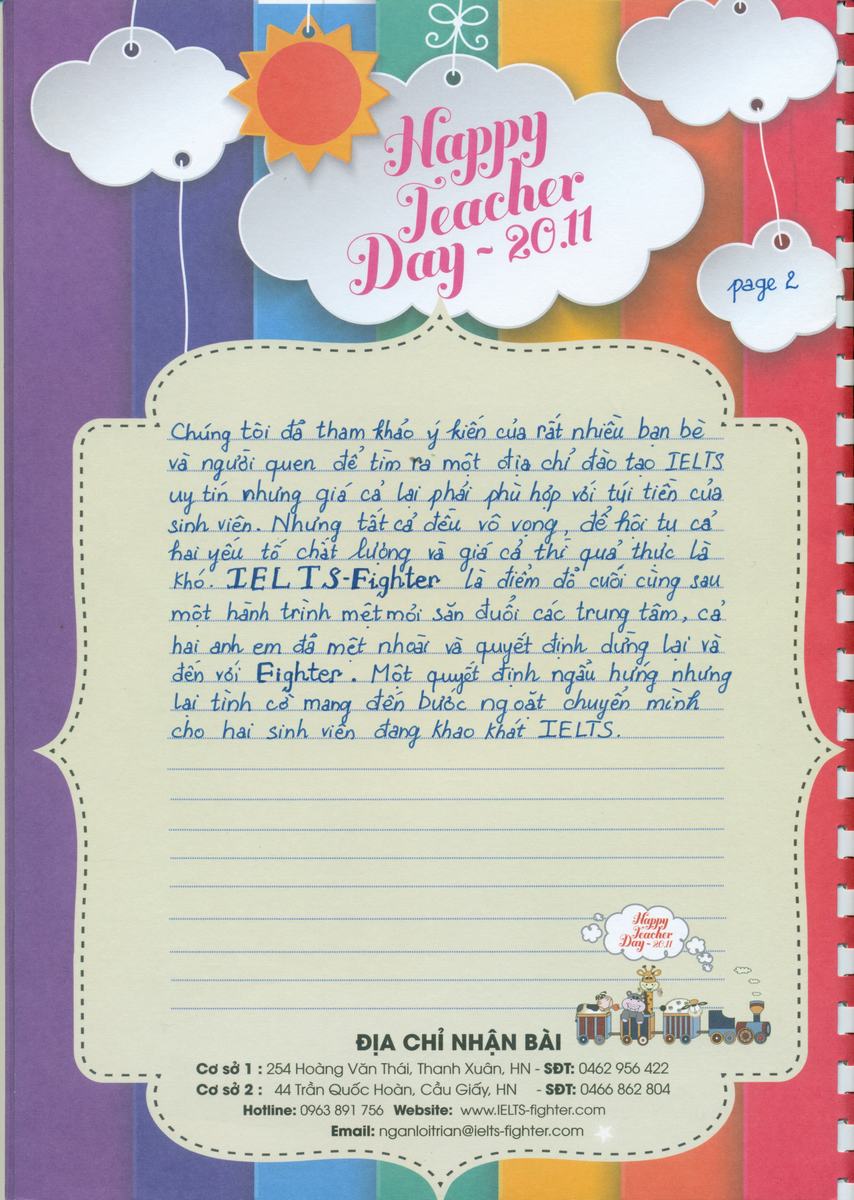 Happy
Teacher
Day ~ 20.11
page 2
Chúng tôi đã tham khảo ý kiến của rất nhiều bạn bè
và người quen để tìm ra một địa chỉ đào tạo IELTS
uy tín nhưng giá cả lại phải phù hợp với túi tiền của
sinh viên. Nhưng tất cả đều vô vọng, để hội tụ cả
hai yếu tố chất lượng và giá cả thì quả thực là
khó. IELTS-Fighter là điểm đỗ cuối cùng sau
một hành trình mệt mỏi săn đuổi các trung tâm, cả
hai anh em đã mệt nhoài và quyết định dừng lại và
đến với Fighter. Một quyết định ngẫu hứng nhưng
lại tình cờ mang đến bước ngoặt chuyển mình
cho hai sinh viên đang khao khát IELTS.
Happy
Teacher
Day ~ 20.11
ĐỊA CHỈ NHẬN BÀI
Cơ sở 1 : 254 Hoàng Văn Thái, Thanh Xuân, HN - SĐT: 0462 956 422
Cơ sở 2 : 44 Trần Quốc Hoàn, Cầu Giấy, HN - SĐT: 0466 862 804
Hotline: 0963 891 756 Website: www.IELTS-fighter.com
Email: nganloitrian@ielts-fighter.com